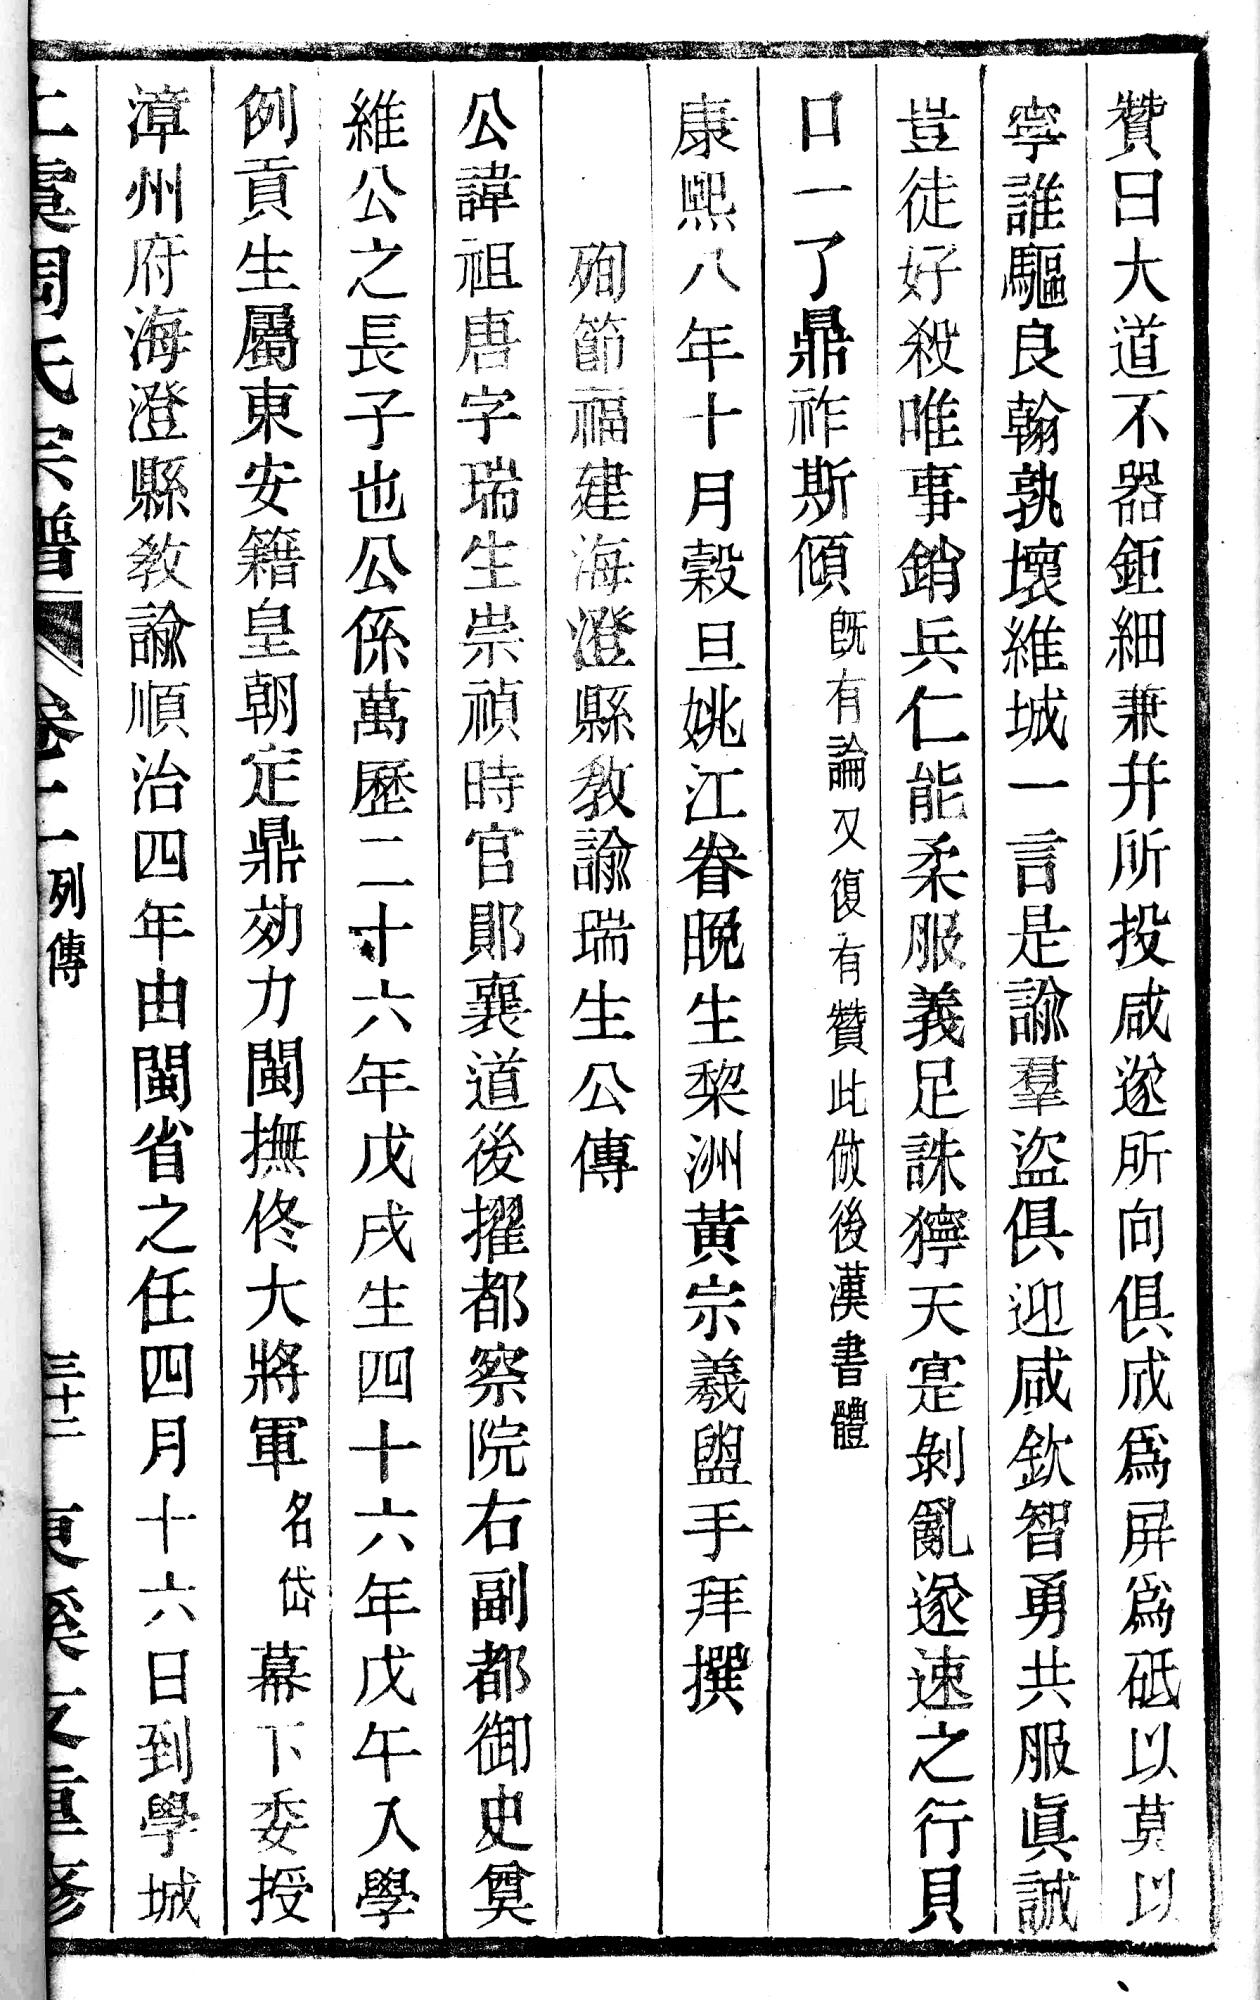 贊曰大道不器鉅細兼幷所投咸遂所向俱成爲屏爲砥以莫以
寧誰驅良翰孰壞維城一言是諭羣盜俱迎咸欽智勇共服眞誠
豈徒好殺唯事銷兵仁能柔服義足誅獰天寔剝亂遂速之行貝
口一了鼎祚斯傾旣有論又復有贊此倣後漢書體
康熙八年十月穀旦姚江眷晚生黎洲黃宗羲盥手拜撰
殉節福建海澄縣敎諭瑞生公傳
公諱祖唐字瑞生崇禎時官鄖襄道後擢都察院右副都御史奠
維公之長子也公係萬歷二十六年戊戌生四十六年戊午入學
例貢生屬東安籍皇朝定鼎効力閩撫佟大將軍名岱幕下委授
漳州府海澄縣敎諭順治四年由閩省之任四月十六日到學城
上虞周氏宗譜 卷十二列傳 三十二 東溪支重修